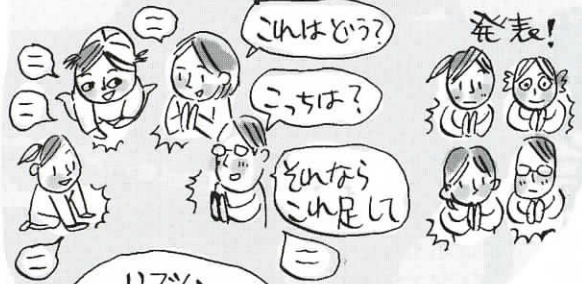 これはどう？
こっちは？
それなら
これ足して
発表！
リズム